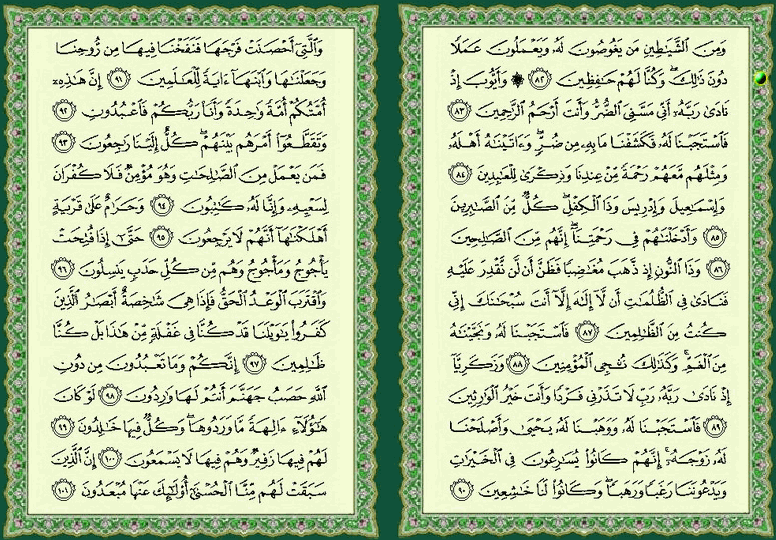 وَمِنَ ٱلشَّيَـٰطِينِ مَن يَغُوصُونَ لَهُۥ وَيَعْمَلُونَ عَمَلًا
دُونَ ذَٰلِكَ ۖ وَكُنَّا لَهُمْ حَـٰفِظِينَ ٨٢ ۞ وَأَيُّوبَ إِذْ
نَادَىٰ رَبَّهُۥٓ أَنِّى مَسَّنِىَ ٱلضُّرُّ وَأَنتَ أَرْحَمُ ٱلرَّٰحِمِينَ ٨٣
فَٱسْتَجَبْنَا لَهُۥ فَكَشَفْنَا مَا بِهِۦ مِن ضُرٍّ ۖ وَءَاتَيْنَـٰهُ أَهْلَهُۥ
وَمِثْلَهُم مَّعَهُمْ رَحْمَةً مِّنْ عِندِنَا وَذِكْرَىٰ لِلْعَـٰبِدِينَ ٨٤
وَإِسْمَـٰعِيلَ وَإِدْرِيسَ وَذَا ٱلْكِفْلِ ۖ كُلٌّ مِّنَ ٱلصَّـٰبِرِينَ
٨٥ وَأَدْخَلْنَـٰهُمْ فِى رَحْمَتِنَآ ۖ إِنَّهُم مِّنَ ٱلصَّـٰلِحِينَ
٨٦ وَذَا ٱلنُّونِ إِذ ذَّهَبَ مُغَـٰضِبًا فَظَنَّ أَن لَّن نَّقْدِرَ عَلَيْهِ
فَنَادَىٰ فِى ٱلظُّلُمَـٰتِ أَن لَّآ إِلَـٰهَ إِلَّآ أَنتَ سُبْحَـٰنَكَ إِنِّى
كُنتُ مِنَ ٱلظَّـٰلِمِينَ ٨٧ فَٱسْتَجَبْنَا لَهُۥ وَنَجَّيْنَـٰهُ
مِنَ ٱلْغَمِّ ۚ وَكَذَٰلِكَ نُـۨجِى ٱلْمُؤْمِنِينَ ٨٨ وَزَكَرِيَّآ
إِذْ نَادَىٰ رَبَّهُۥ رَبِّ لَا تَذَرْنِى فَرْدًا وَأَنتَ خَيْرُ ٱلْوَٰرِثِينَ
٨٩ فَٱسْتَجَبْنَا لَهُۥ وَوَهَبْنَا لَهُۥ يَحْيَىٰ وَأَصْلَحْنَا
لَهُۥ زَوْجَهُۥٓ ۚ إِنَّهُمْ كَانُوا۟ يُسَـٰرِعُونَ فِى ٱلْخَيْرَٰتِ
وَيَدْعُونَنَا رَغَبًا وَرَهَبًا ۖ وَكَانُوا۟ لَنَا خَـٰشِعِينَ ٩٠
وَٱلَّتِىٓ أَحْصَنَتْ فَرْجَهَا فَنَفَخْنَا فِيهَا مِن رُّوحِنَا
وَجَعَلْنَـٰهَا وَٱبْنَهَآ ءَايَةً لِّلْعَـٰلَمِينَ ٩١ إِنَّ هَـٰذِهِۦٓ
أُمَّتُكُمْ أُمَّةً وَٰحِدَةً وَأَنَا۠ رَبُّكُمْ فَٱعْبُدُونِ ٩٢
وَتَقَطَّعُوٓا۟ أَمْرَهُم بَيْنَهُمْ ۖ كُلٌّ إِلَيْنَا رَٰجِعُونَ ٩٣
فَمَن يَعْمَلْ مِنَ ٱلصَّـٰلِحَـٰتِ وَهُوَ مُؤْمِنٌ فَلَا كُفْرَانَ
لِسَعْيِهِۦ وَإِنَّا لَهُۥ كَـٰتِبُونَ ٩٤ وَحَرَٰمٌ عَلَىٰ قَرْيَةٍ
أَهْلَكْنَـٰهَآ أَنَّهُمْ لَا يَرْجِعُونَ ٩٥ حَتَّىٰٓ إِذَا فُتِحَتْ
يَأْجُوجُ وَمَأْجُوجُ وَهُم مِّن كُلِّ حَدَبٍ يَنسِلُونَ ٩٦
وَٱقْتَرَبَ ٱلْوَعْدُ ٱلْحَقُّ فَإِذَا هِىَ شَـٰخِصَةٌ أَبْصَـٰرُ ٱلَّذِينَ
كَفَرُوا۟ يَـٰوَيْلَنَا قَدْ كُنَّا فِى غَفْلَةٍ مِّنْ هَـٰذَا بَلْ كُنَّا
ظَـٰلِمِينَ ٩٧ إِنَّكُمْ وَمَا تَعْبُدُونَ مِن دُونِ
ٱللَّهِ حَصَبُ جَهَنَّمَ أَنتُمْ لَهَا وَٰرِدُونَ ٩٨ لَوْ كَانَ
هَـٰٓؤُلَآءِ ءَالِهَةً مَّا وَرَدُوهَا ۖ وَكُلٌّ فِيهَا خَـٰلِدُونَ ٩٩
لَهُمْ فِيهَا زَفِيرٌ وَهُمْ فِيهَا لَا يَسْمَعُونَ ١٠٠ إِنَّ ٱلَّذِينَ
سَبَقَتْ لَهُم مِّنَّا ٱلْحُسْنَىٰٓ أُو۟لَـٰٓئِكَ عَنْهَا مُبْعَدُونَ ١٠١